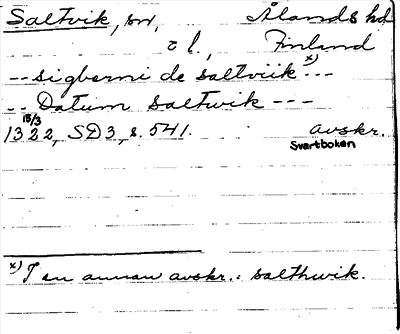 Saltvik, sn, Ålands hd
Finland
-- sigberni de saltviik x) ---
-- Datum saltwik ---
15/3
1322, SD3, s. 541. avskr.
Svartboken
x) I en annan avskr.: salthwik.